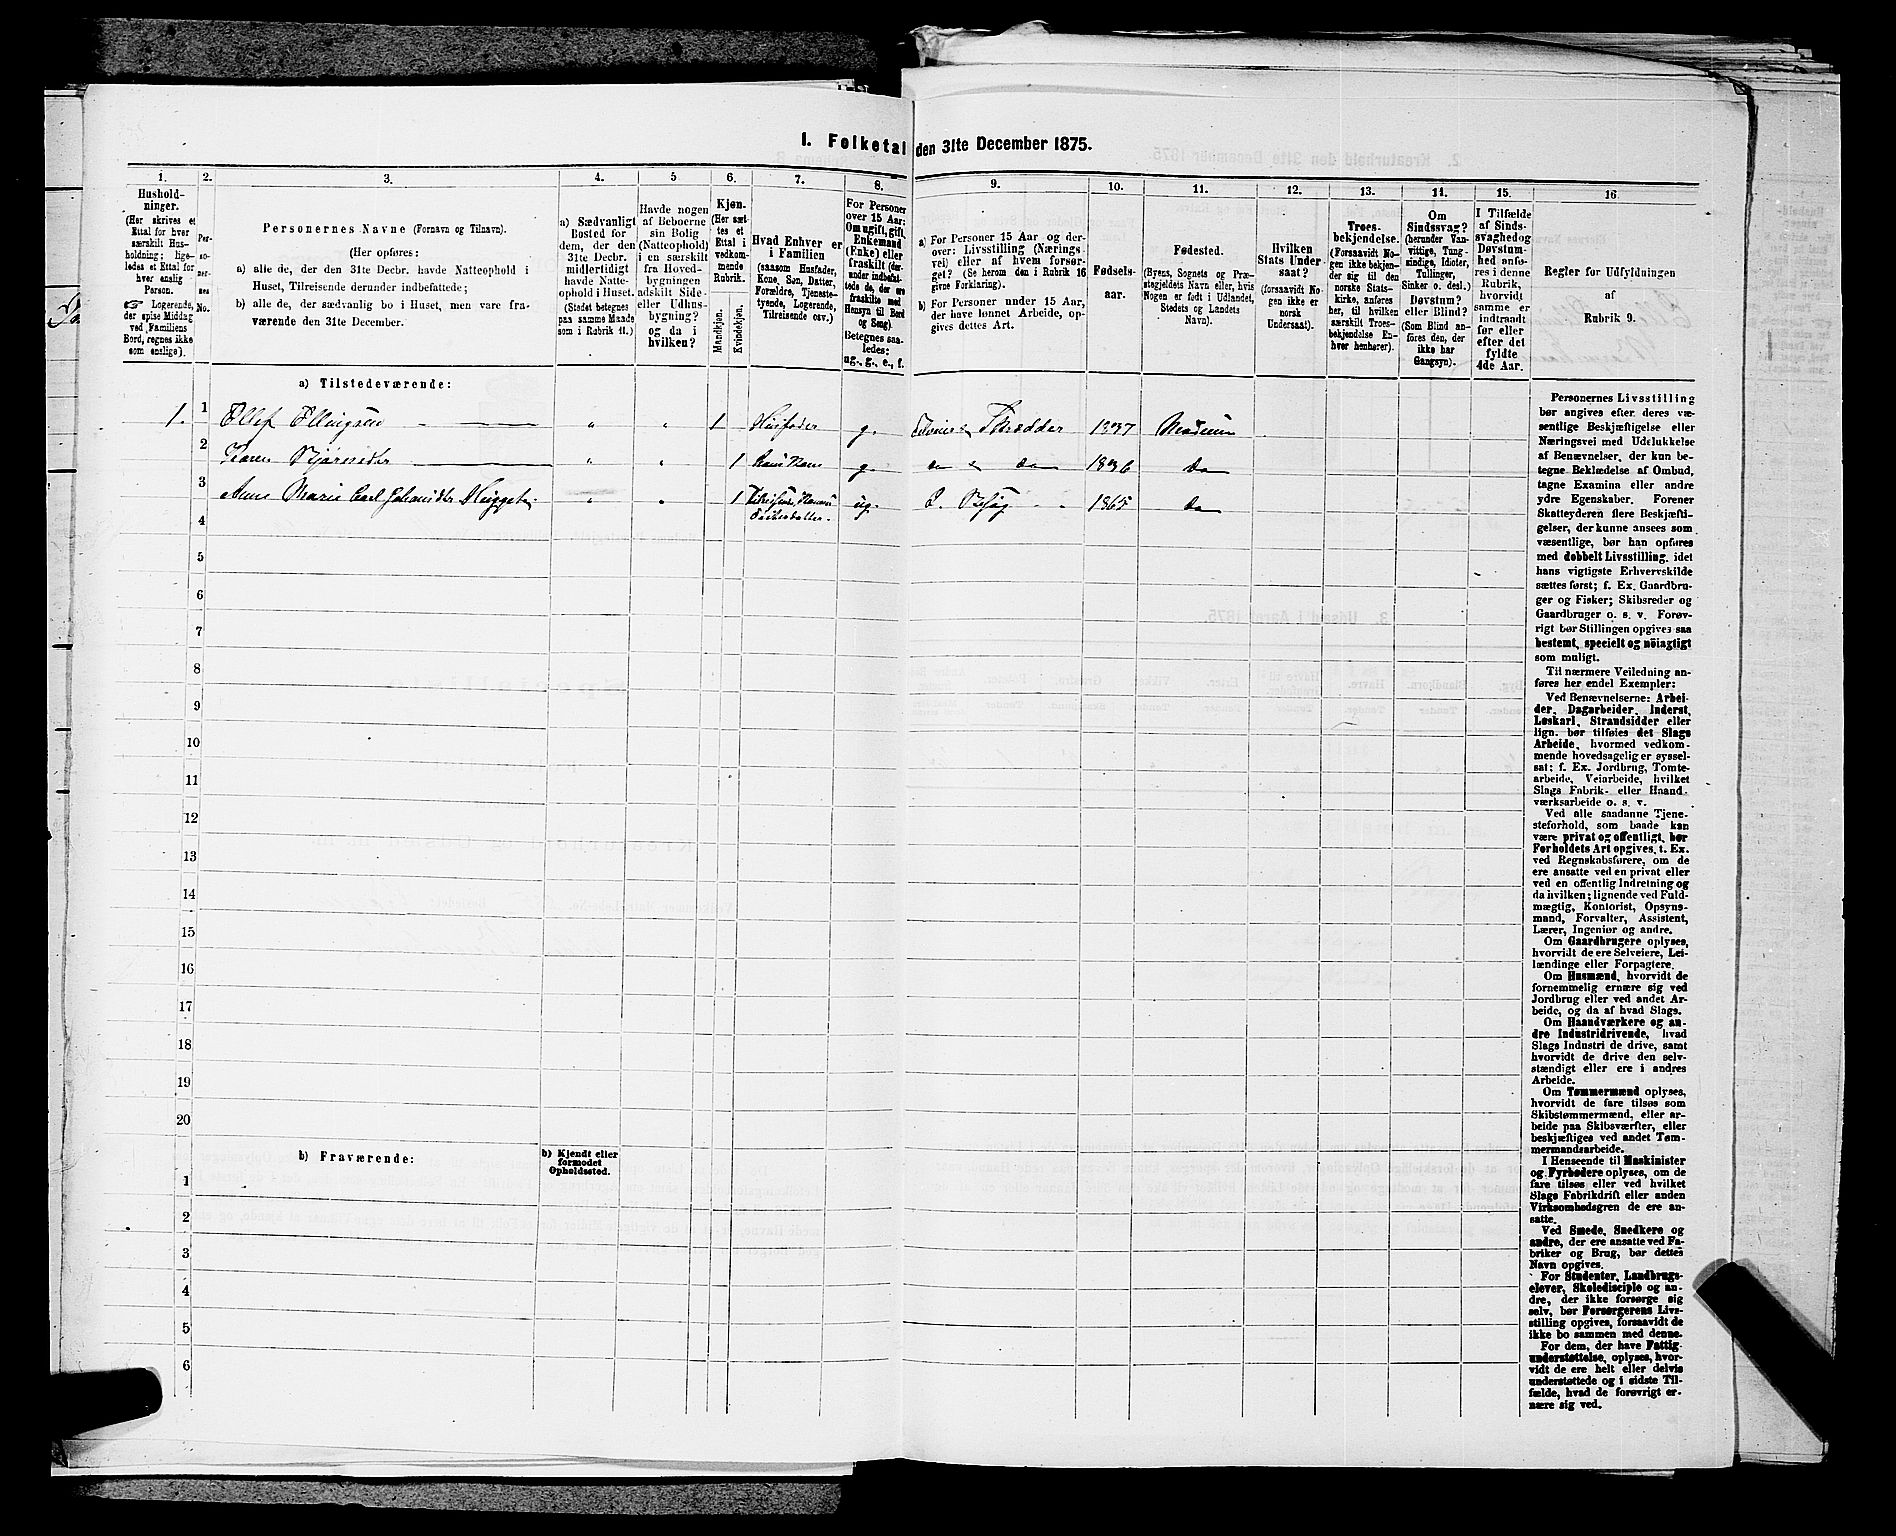 1. Folketal den 31te December 1875.
1. 2. 3. 4. 5 6. 7. 8. 9. 10. 11. 12. 13. 14. 15. 16
Hushold-
ninger.
(Her skrives et
Ettal for hver
særskilt Hus-
holdning; lige-
ledes et Ettal for
hver enslig
Person.
☞ Logerende,
der spise Middag
ved Familiens
Bord, regnes ikke
som enslige).
Per-
so-
ner-
nes
No.
Personernes Navne (Fornavn og Tilnavn).
(Her opføres:
a) alle de, der den 31te Decbr. havde Natteophold i
Huset, Tilreisende derunder indbefattede;
b) alle de, der sædvanlig bo i Huset, men vare fra-
værende den 31te December.
a) Sædvanligt
Bosted for
dem, der den
31te Decbr.
midlertidigt
havde Natte-
ophold i Huset.
(Stedet betegnes
paa samme Maade
som i Rubrik 11.)
Havde nogen
af Beboerne
sin Bolig
(Natteophold)
i en særskilt
fra Hoved-
bygningen
adskilt Side-
eller Udhus-
bygning?
og da i
hvilken?
Kjøn.
(Her sæt-
tes et
Ettal i
vedkom-
mende
Rubrik.
Mandkjøn.
Kvindekjøn.
Hvad Enhver er
i Familien
(saasom Husfader,
Kone, Søn, Datter,
Forældre, Tjeneste-
tyende, Logerende,
Tilreisende osv.)
For Personer
over 15 Aar:
Om ugift, gift,
Enkemand
(Enke) eller
fraskilt (der-
under indbefat-
tede de, der ere
fraskilte med
Hensyn til Bord
og Seng).
Betegnes saa-
ledes:
ug., g., e., f.
a) For Personer 15 Aar og der-
over: Livsstilling (Nærings-
vei) eller af hvem forsør-
get? (Se herom den i Rubrik 16
givne Forklaring).
b) For Personer under 15 Aar,
der have lønnet Arbeide, op-
gives dettes Art.
Fødsels-
aar.
Fødested.
(Byens, Sognets og Præ-
stegjeldets Navn eller, hvis
Nogen er født i Udlandet,
Stedets og Landets
Navn).
Hvilken
Stats Under-
saat?
(forsaavidt No-
gen ikke er
norsk
Undersaat).
Troes-
bekjendelse.
(Forsaavidt No-
gen ikke bekjen-
der sig til den
norske Stats-
kirke, anføres
her, til hvilken
særskilt Troes-
bekjendelse En-
hver henhører).
Om
Sindssvag?
(herunder Van-
vittige, Tung-
sindige, Idioter,
Tullinger,
Sinker o. desl.)
Døvstum?
eller Blind?
(Som Blind an-
føres den, der
ikke har
Gangsyn).
I Tilfælde
af Sinds-
svaghed og
Døvstum-
hed anfø-
res i denne
Rubrik,
hvorvidt
samme er
indtraadt
før eller
efter det
fyldte
4de Aar.
Regler for Udfyldningen
af
Rubrik 9.
a) Tilstedeværende:
1. 1 Ellef Ellingsen „ „ 1 Husfader g. Skrædder 1837 Modum
2 Karen „ „ 1 Hans Kone g. do 1836 do
3 Anne Marie Carl Johansdtr „ „ 1 ug. P. Besøg 1865 do
4
5
6
7
8
9
10
11
12
13
14
15
16
17
18
19
20
b) Fraværende:
b) Kjendt eller
formodet
Opholdssted.
1
2
3
4
5
6
Personernes Livsstilling
bør angives efter deres væ-
sentlige Beskjæftigelse eller
Næringsvei med Udelukkelse
af Benævnelser, der kun be-
tegne Beklædelse af Ombud,
tagne Examina eller andre
ydre Egenskaber. Forener
Skatteyderen flere Beskjæfti-
gelser, der kunne ansees som
væsentlige, bør han opføres
med dobbelt Livsstilling, idet
hans vigtigste Erhvervskilde
sættes først; f. Ex. Gaardbru-
ger og Fisker; Skibsreder og
Gaardbruger o. s. v. Forøv-
rigt bør Stillingen opgives saa
bestemt, specielt og nöiagtigt
som muligt.
Til nærmere Veiledning an-
føres her endel Exempler:
Ved Benævnelserne: Arbei-
der, Dagarbeider, Inderst,
Løskarl, Strandsidder eller
lign. bør tilføies det Slags
Arbeide, hvormed vedkom-
mende hovedsagelig er syssel-
sat; f. Ex. Jordbrug, Tomte-
arbeide, Veiarbeide, hvilket
Slags Fabrik- eller Haand-
værksarbeide o. s. v.
Ved alle saadanne Tjene-
steforhold, som baade kan
være privat og offentligt, bør
Forholdets Art opgives, t. Ex.
ved Regnskabsførere, om de
ere ansatte ved en privat eller
ved en offentlig Indretning og
da hvilken; lignende ved Fuld-
mægtig, Kontorist, Opsyns-
mand, Forvalter, Assistent,
Lærer, Ingeniør og andre.
Om Gaardbrugere oplyses,
hvorvidt de ere Selveiere, Lei-
lændinge eller Forpagtere.
Om Husmænd, hvorvidt de
fornemmelig ernære sig ved
Jordbrug eller ved andet Ar-
beide, og da af hvad Slags.
Om Haandværkere og an-
dre Industridrivende, hvad
Slags Industri de drive, samt
hvorvidt de drive den selv-
stændigt eller ere i andres
Arbeide.
Om Tømmermænd oplyses,
hvorvidt de fare tilsøs som
Skibstømmermænd, eller ar-
beide paa Skibsværfter, eller
beskjæftiges ved andet Tøm-
mermandsarbeide.
I Henseende til Maskinister
og Fyrbødere oplyses, om de
fare tilsøs eller ved hvilket
Slags Fabrikdrift eller anden
Virksomhedsgren de ere an-
satte.
Ved Smede, Snedkere og
andre, der ere ansatte ved Fa-
briker og Brug, bør dettes
Navn opgives.
For Studenter, Landbrugs-
elever, Skoledisciple og an-
dre, der ikke forsørge sig
selv, bør Forsørgerens Livs-
stilling opgives, forsaavidt de
ikke bo sammen med denne.
For dem, der have Fattig-
understøttelse, oplyses, hvor-
vidt de ere helt eller delvis
understøttede og i sidste Til-
fælde, hvad de forøvrigt er-
nære sig ved.